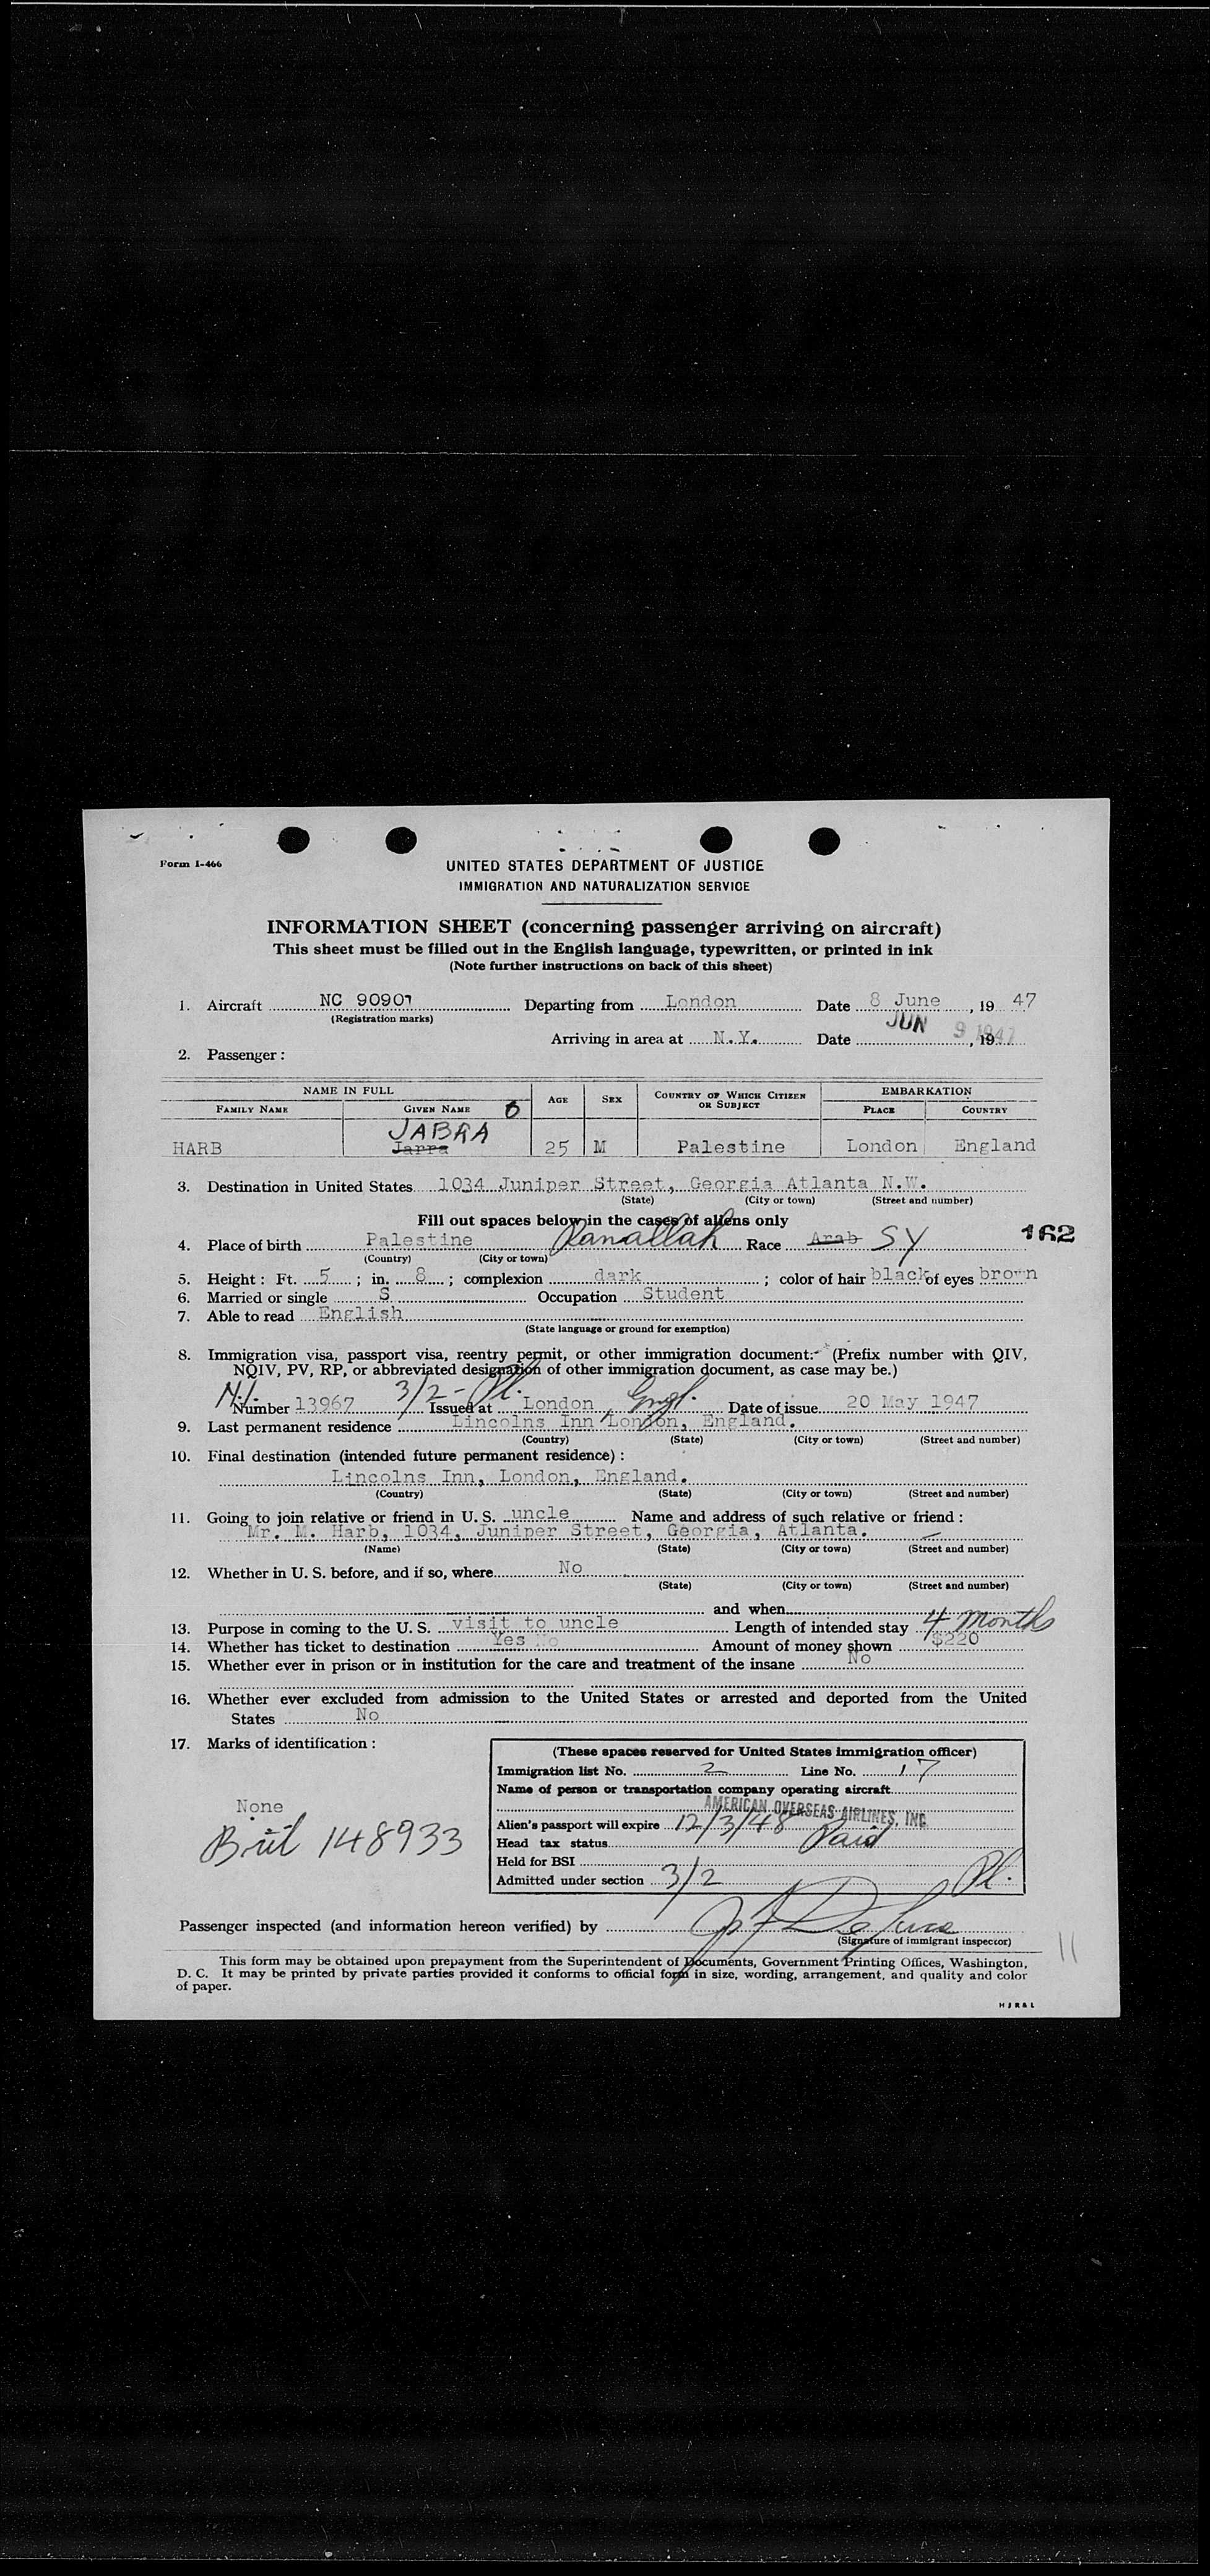 Form I-466
UNITED STATES DEPARTMENT OF JUSTICE
IMMIGRATION AND NATURALIZATION SERVICE
INFORMATION SHEET (concerning passenger arriving on aircraft)
This sheet must be filled out in the English language, typewritten, or printed in ink
(Note further instructions on back of this sheet)
1. Aircraft NC 90907 Departing from London Date 8 June, 19 47
(Registration marks)
Arriving in area at N.Y. Date JUN 9 1947, 19
2. Passenger :
NAME IN FULL AGE SEX COUNTRY OF WHICH CITIZEN OR SUBJECT EMBARKATION
FAMILY NAME GIVEN NAME PLACE COUNTRY
JABRA
HARB Jarra 25 M Palestine London England
3. Destination in United States 1034 Juniper Street, Georgia Atlanta N.W.
(State) (City or town) (Street and number)
Fill out spaces below in the cases of aliens only
4. Place of birth Palestine Ramallah Race Arab SY 162
(Country) (City or town)
5. Height : Ft. 5 ; in. 8 ; complexion dark ; color of hair black of eyes brown
6. Married or single S Occupation Student
7. Able to read English
(State language or ground for exemption)
8. Immigration visa, passport visa, reentry permit, or other immigration document: (Prefix number with QIV,
NQIV, PV, RP, or abbreviated designation of other immigration document, as case may be.)
Number 13967 3/2 - Pl. Issued at London, Engl. Date of issue 20 May 1947
9. Last permanent residence Lincolns Inn London, England.
(Country) (State) (City or town) (Street and number)
10. Final destination (intended future permanent residence) :
Lincolns Inn, London, England.
(Country) (State) (City or town) (Street and number)
11. Going to join relative or friend in U. S. uncle Name and address of such relative or friend :
Mr. M. Harb, 1034, Juniper Street, Georgia, Atlanta.
(Name) (State) (City or town) (Street and number)
12. Whether in U. S. before, and if so, where No
(State) (City or town) (Street and number)
and when
13. Purpose in coming to the U. S. visit to uncle Length of intended stay 4 months
14. Whether has ticket to destination Yes No Amount of money shown $220
15. Whether ever in prison or in institution for the care and treatment of the insane No
16. Whether ever excluded from admission to the United States or arrested and deported from the United
States No
17. Marks of identification :
None
Brit 148933
(These spaces reserved for United States immigration officer)
Immigration list No. 2 Line No. 17
Name of person or transportation company operating aircraft
AMERICAN OVERSEAS AIRLINES, INC
Alien's passport will expire 12/3/48
Head tax status Paid
Held for BSI
Admitted under section 3/2 Pl.
Passenger inspected (and information hereon verified) by
(Signature of immigrant inspector)
11
This form may be obtained upon prepayment from the Superintendent of Documents, Government Printing Offices, Washington,
D. C. It may be printed by private parties provided it conforms to official form in size, wording, arrangement, and quality and color
of paper.
H J R & L